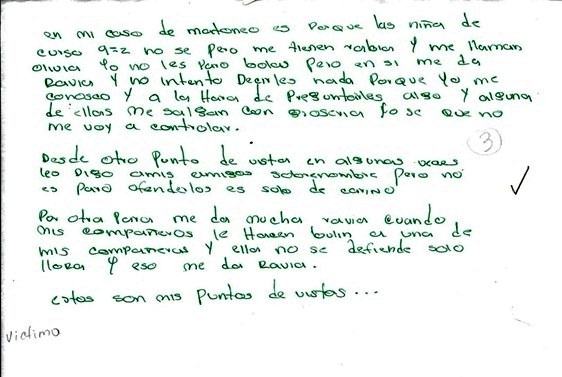 en mi caso de matoneo es porque las niña de
curso 9=2 no se pero me tienen rabia y me llaman
olivia yo no les paro bolas pero en si me da
Ravia y no intento Decirles nada Porque yo me
conosco y a la Hora de Preguntarles algo y alguna
de ellas me salgam con groseria yo se que no
me voy a controlar.
3
Desde otro Punto de vista en algunas veces
les Digo amis amigos sobrenombre pero no
es para ofendelos es solo de cariño
Por otra Parte me da mucha ravia cuando
mis compañeros le Hacen bulin a una de
mis compañeras y ella no se defiende solo
llora y eso me da Ravia.
estos son mis Puntos de vistas...
victima